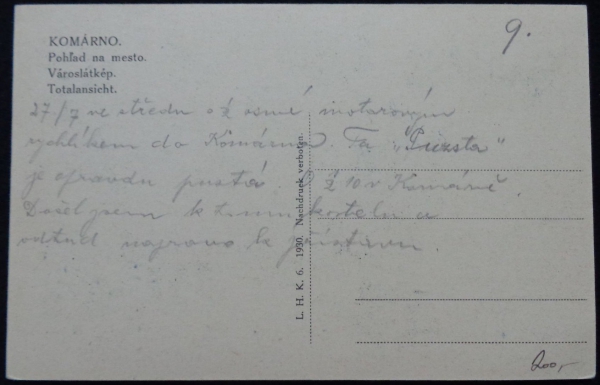 9.
KOMÁRNO.
Pohľad na mesto.
Városlátkép.
Totalansicht.
27/7 ve středu o ž osmé motorovým
rychlíkem do Komárna. Ta „Puszta"
je opravdu pustá. O ž 10 v Komárně.
Došel jsem k kostelu a
odtud napravo k přístavu.
L. H. K. 6. 1930. Nachdruck verboten.
200,-